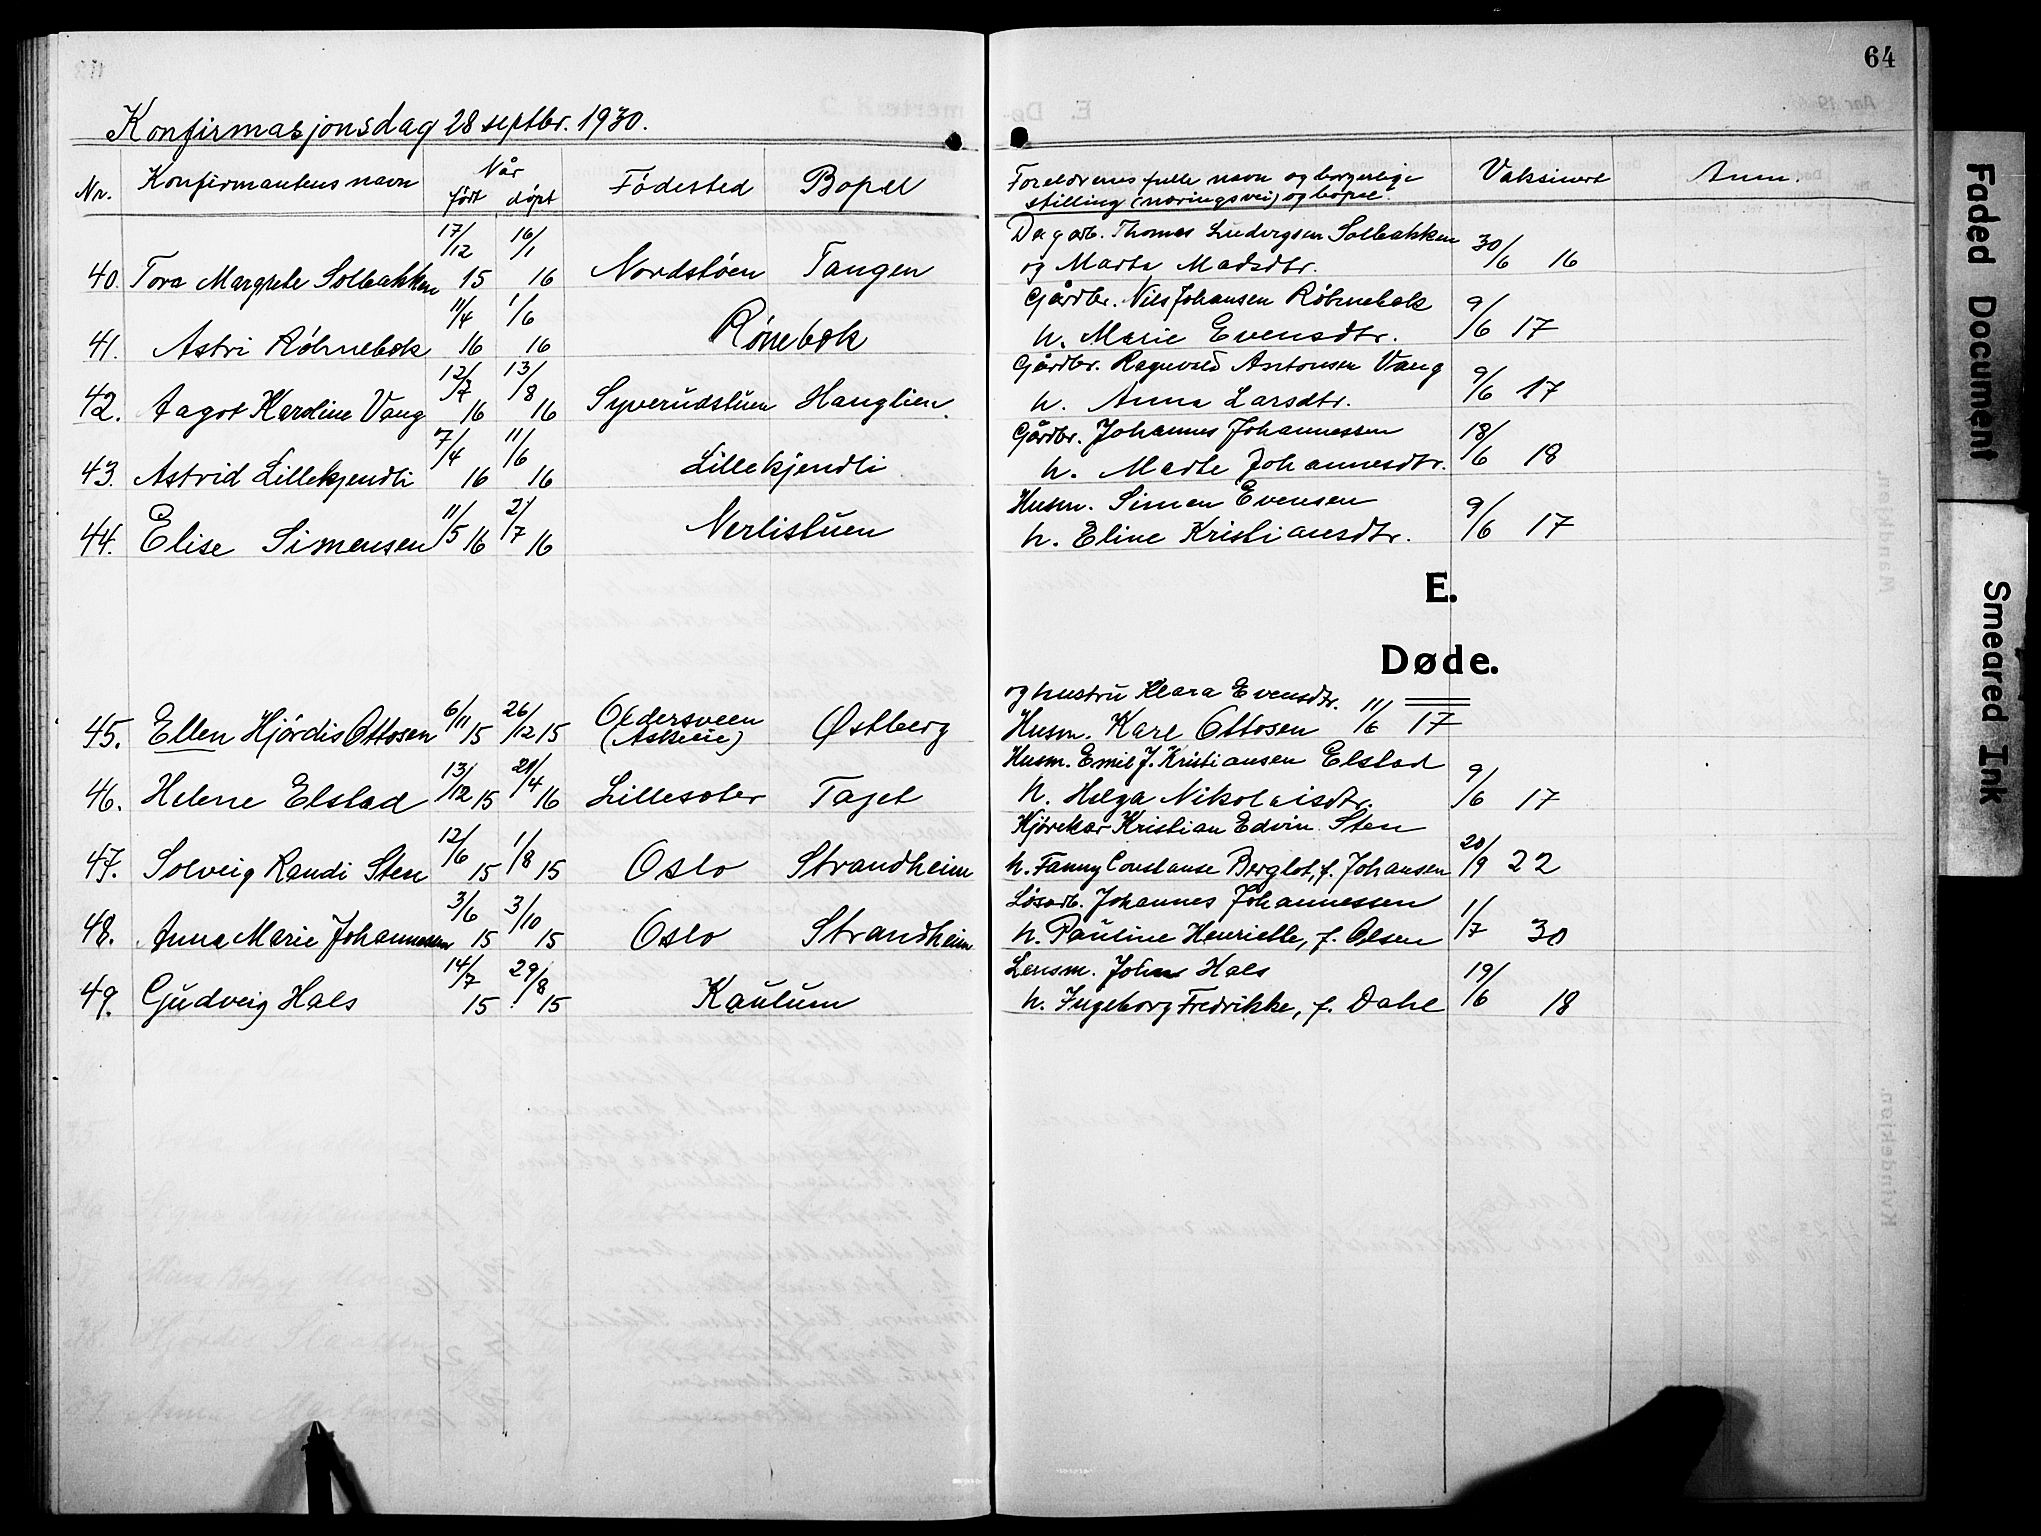 64
Konfirmasjonsdag 28 septbr. 1930.
Nr. Konfirmantens navn Når født døpt Fødested Bopel Foreldrenes fulle navn og borgerlige stilling (næringsvei) og bopel. Vaksinert Anm.
17/12 16/1 Dagarb. Thomas Ludvigsen Solbakken 30/6 16
40. Tora Margrete Solbakken 15 16 Nordstøen Tangen og Marta Madsdtr.
11/4 1/6 Gårdbr. Nils Johansen Røhnebæk 9/6 17
41. Astri Røhnebæk 16 16 Rønebæk h. Marie Evensdtr.
12/7 13/8 Gårdbr. Ragnvald Antonsen Vang 9/6 17
42. Aagot Karoline Vang 16 16 Syverudstuen Hanglien. h. Anna Larsdtr.
7/4 11/6 Gårdbr. Johannes Johannessen 18/6 18
43. Astrid Lillekjendli 16 16 Lillekjendli h. Marte Johannesdtr.
11/5 2/7 Husm. Simen Evensen 9/6 17
44. Elise Simensen 16 16 Nerlistuen h. Eline Kristiansdtr.
E.
Døde.
og hustru Klara Evensdtr.
45. Ellen Hjørdis Ottosen 6/11 15 26/12 15 Oldersveen (Askeie) Østberg Husm. Karl Ottosen 11/6 17
13/12 21/4 Husm. Emil J. Kristiansen Elstad 9/6 17
46. Helene Elstad 15 16 Lillesæter Tajet h. Helga Nikolaisdtr.
12/6 1/8 Kjørekar Kristian Edvin Sten
47. Solveig Randi Sten 15 15 Oslo Strandheim h. Fanny Constanse Berglot, f. Johansen 20/9 22
3/6 3/10 Løsarb. Johannes Johannessen 1/7 30
48. Anna Marie Johannessen 15 15 Oslo Strandheim h. Pauline Henriette, f. Olsen
14/7 29/8 Lensm. Johns Hals 19/6 18
49. Gudveig Hals 15 15 Kaulum h. Ingeborg Fredrikke, f. Dahl
Faded Document
Smeared Ink